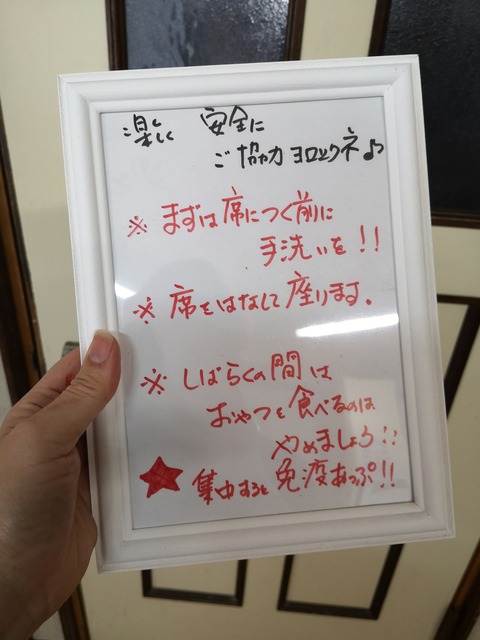 楽しく 安全に
ご協力ヨロシクネ♪
※ まずは席につく前に
手洗いを!!
※ 席をはなして座ります。
※ しばらくの間は
おやつを食べるのは
やめましょう!!
★ 集中すると免疫あっぷ!!